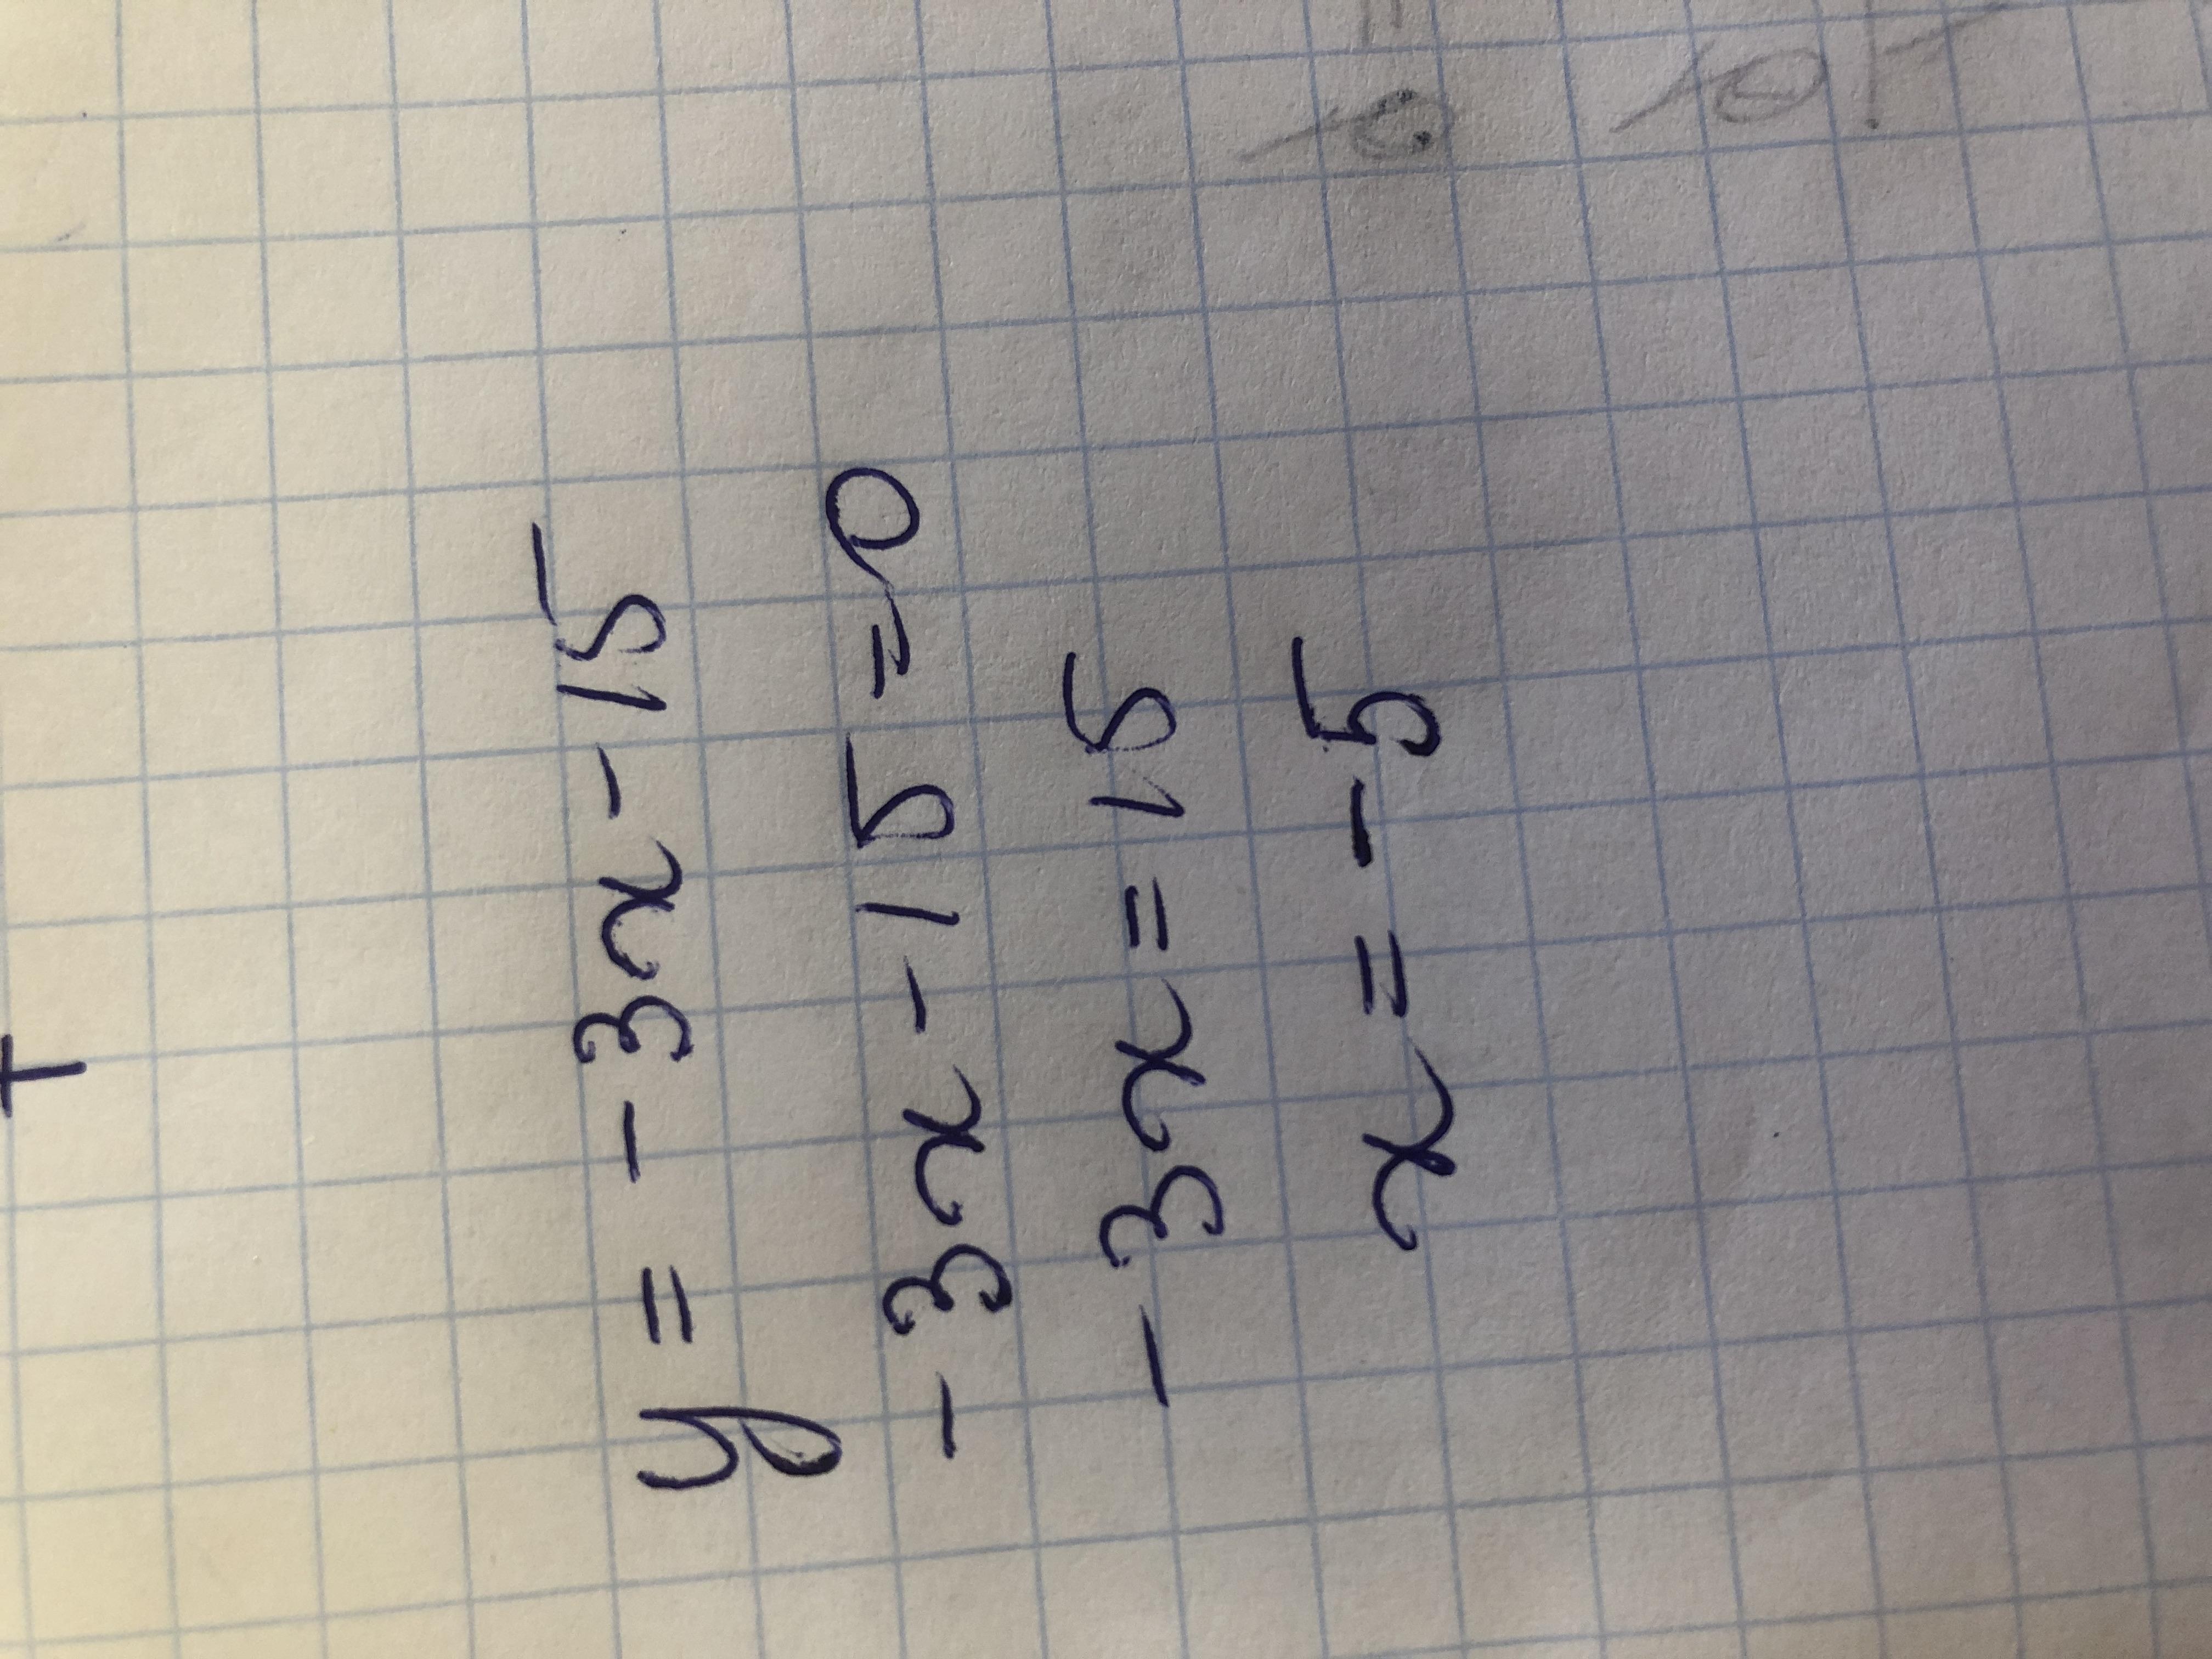 y = - 3x - 15
- 3x - 15 = 0
- 3x = 15
x = - 5